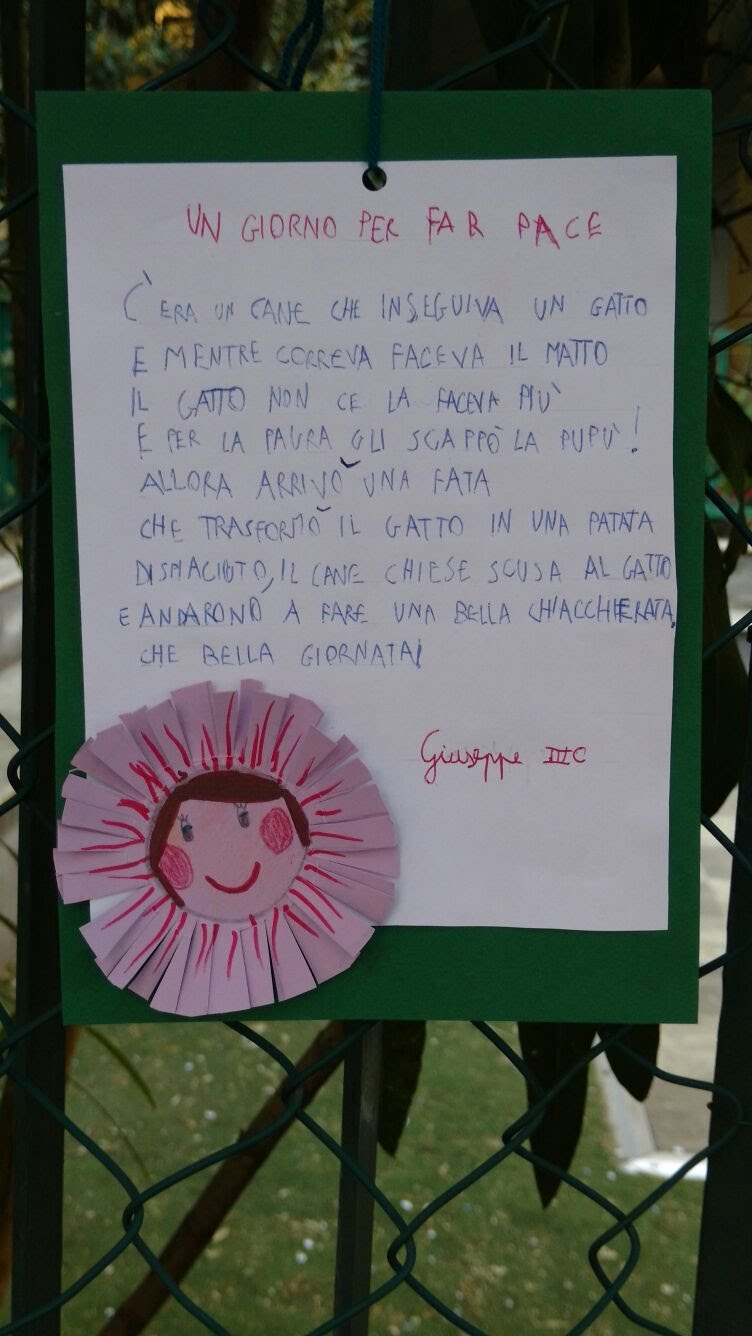 UN GIORNO PER FAR PACE
C'ERA UN CANE CHE INSEGUIVA UN GATTO
E MENTRE CORREVA FACEVA IL MATTO
IL GATTO NON CE LA FACEVA PIÙ
E PER LA PAURA GLI SCAPPÒ LA PUPÙ!
ALLORA ARRIVÒ UNA FATA
CHE TRASFORMÒ IL GATTO IN UNA PATATA
DISPIACIUTO, IL CANE CHIESE SCUSA AL GATTO
E ANDARONO A FARE UNA BELLA CHIACCHIERATA.
CHE BELLA GIORNATA!
Giuseppe III C